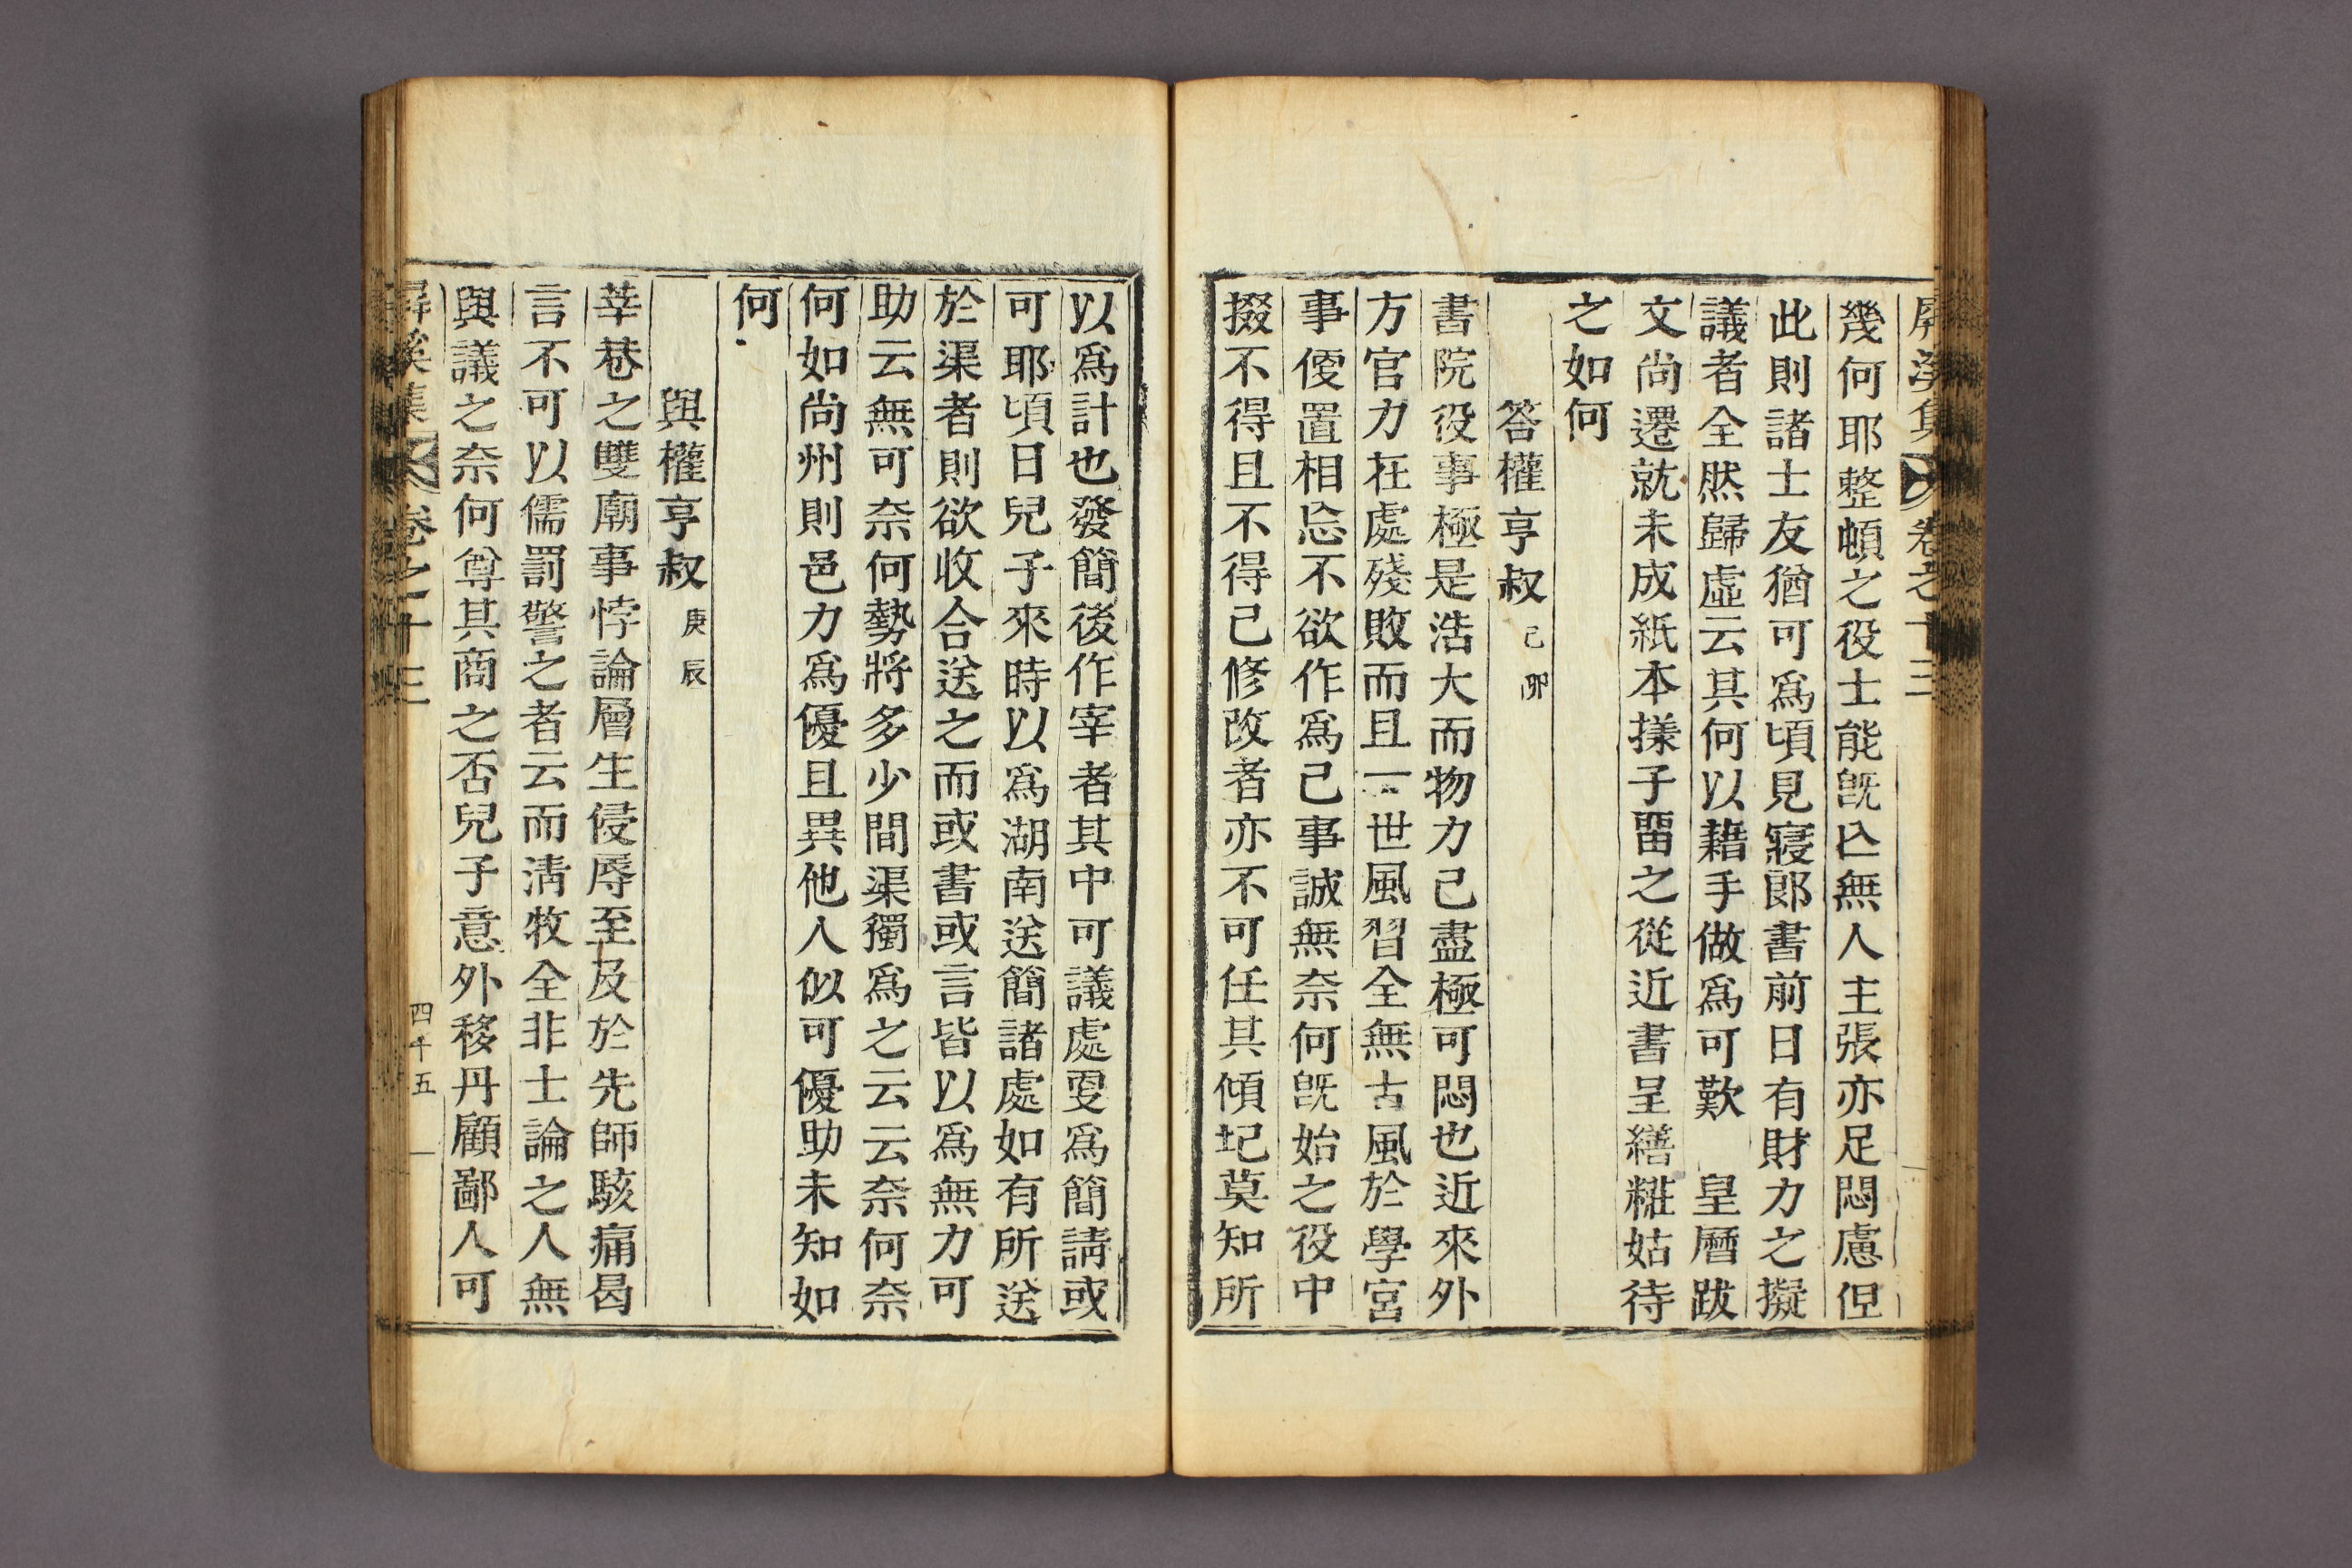 屛溪集 卷之十三
幾何耶整頓之役士能旣亾無人主張亦足悶慮但
此則諸士友猶可爲頃見寢郞書前日有財力之擬
議者全然歸虛云其何以藉手做爲可歎 皇曆跋
文尚遷就未成紙本㨾子留之從近書呈繕糚姑待
之如何
答權亨叔 己卯
書院役事極是浩大而物力已盡極可悶也近來外
方官力在處殘敗而且一世風習全無古風於學宮
事便置相忘不欲作爲己事誠無奈何旣始之役中
掇不得且不得已修改者亦不可任其傾圮莫知所
以爲計也發簡後作宰者其中可議處更爲簡請或
可耶頃日兒子來時以爲湖南送簡諸處如有所送
於渠者則欲收合送之而或書或言皆以爲無力可
助云無可奈何勢將多少間渠獨爲之云云奈何奈
何如尚州則邑力爲優且異他人似可優助未知如
何
與權亨叔 庚辰
莘巷之雙廟事悖論層生侵辱至及於先師駭痛曷
言不可以儒罰警之者云而淸牧全非士論之人無
與議之奈何尊其商之否兒子意外移丹顧鄙人可
屛溪集 卷之十三 四十五